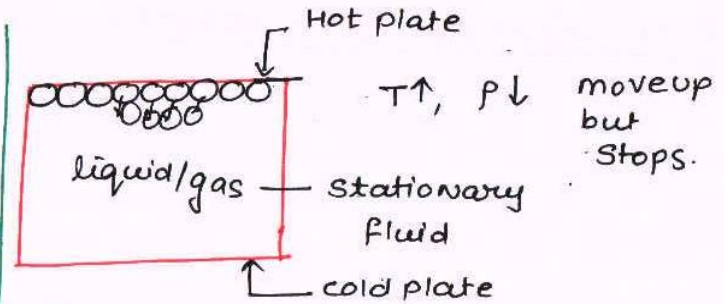 Hot plate
T↑, ρ↓ moveup
but
stops.
liquid/gas
stationary
fluid
cold plate